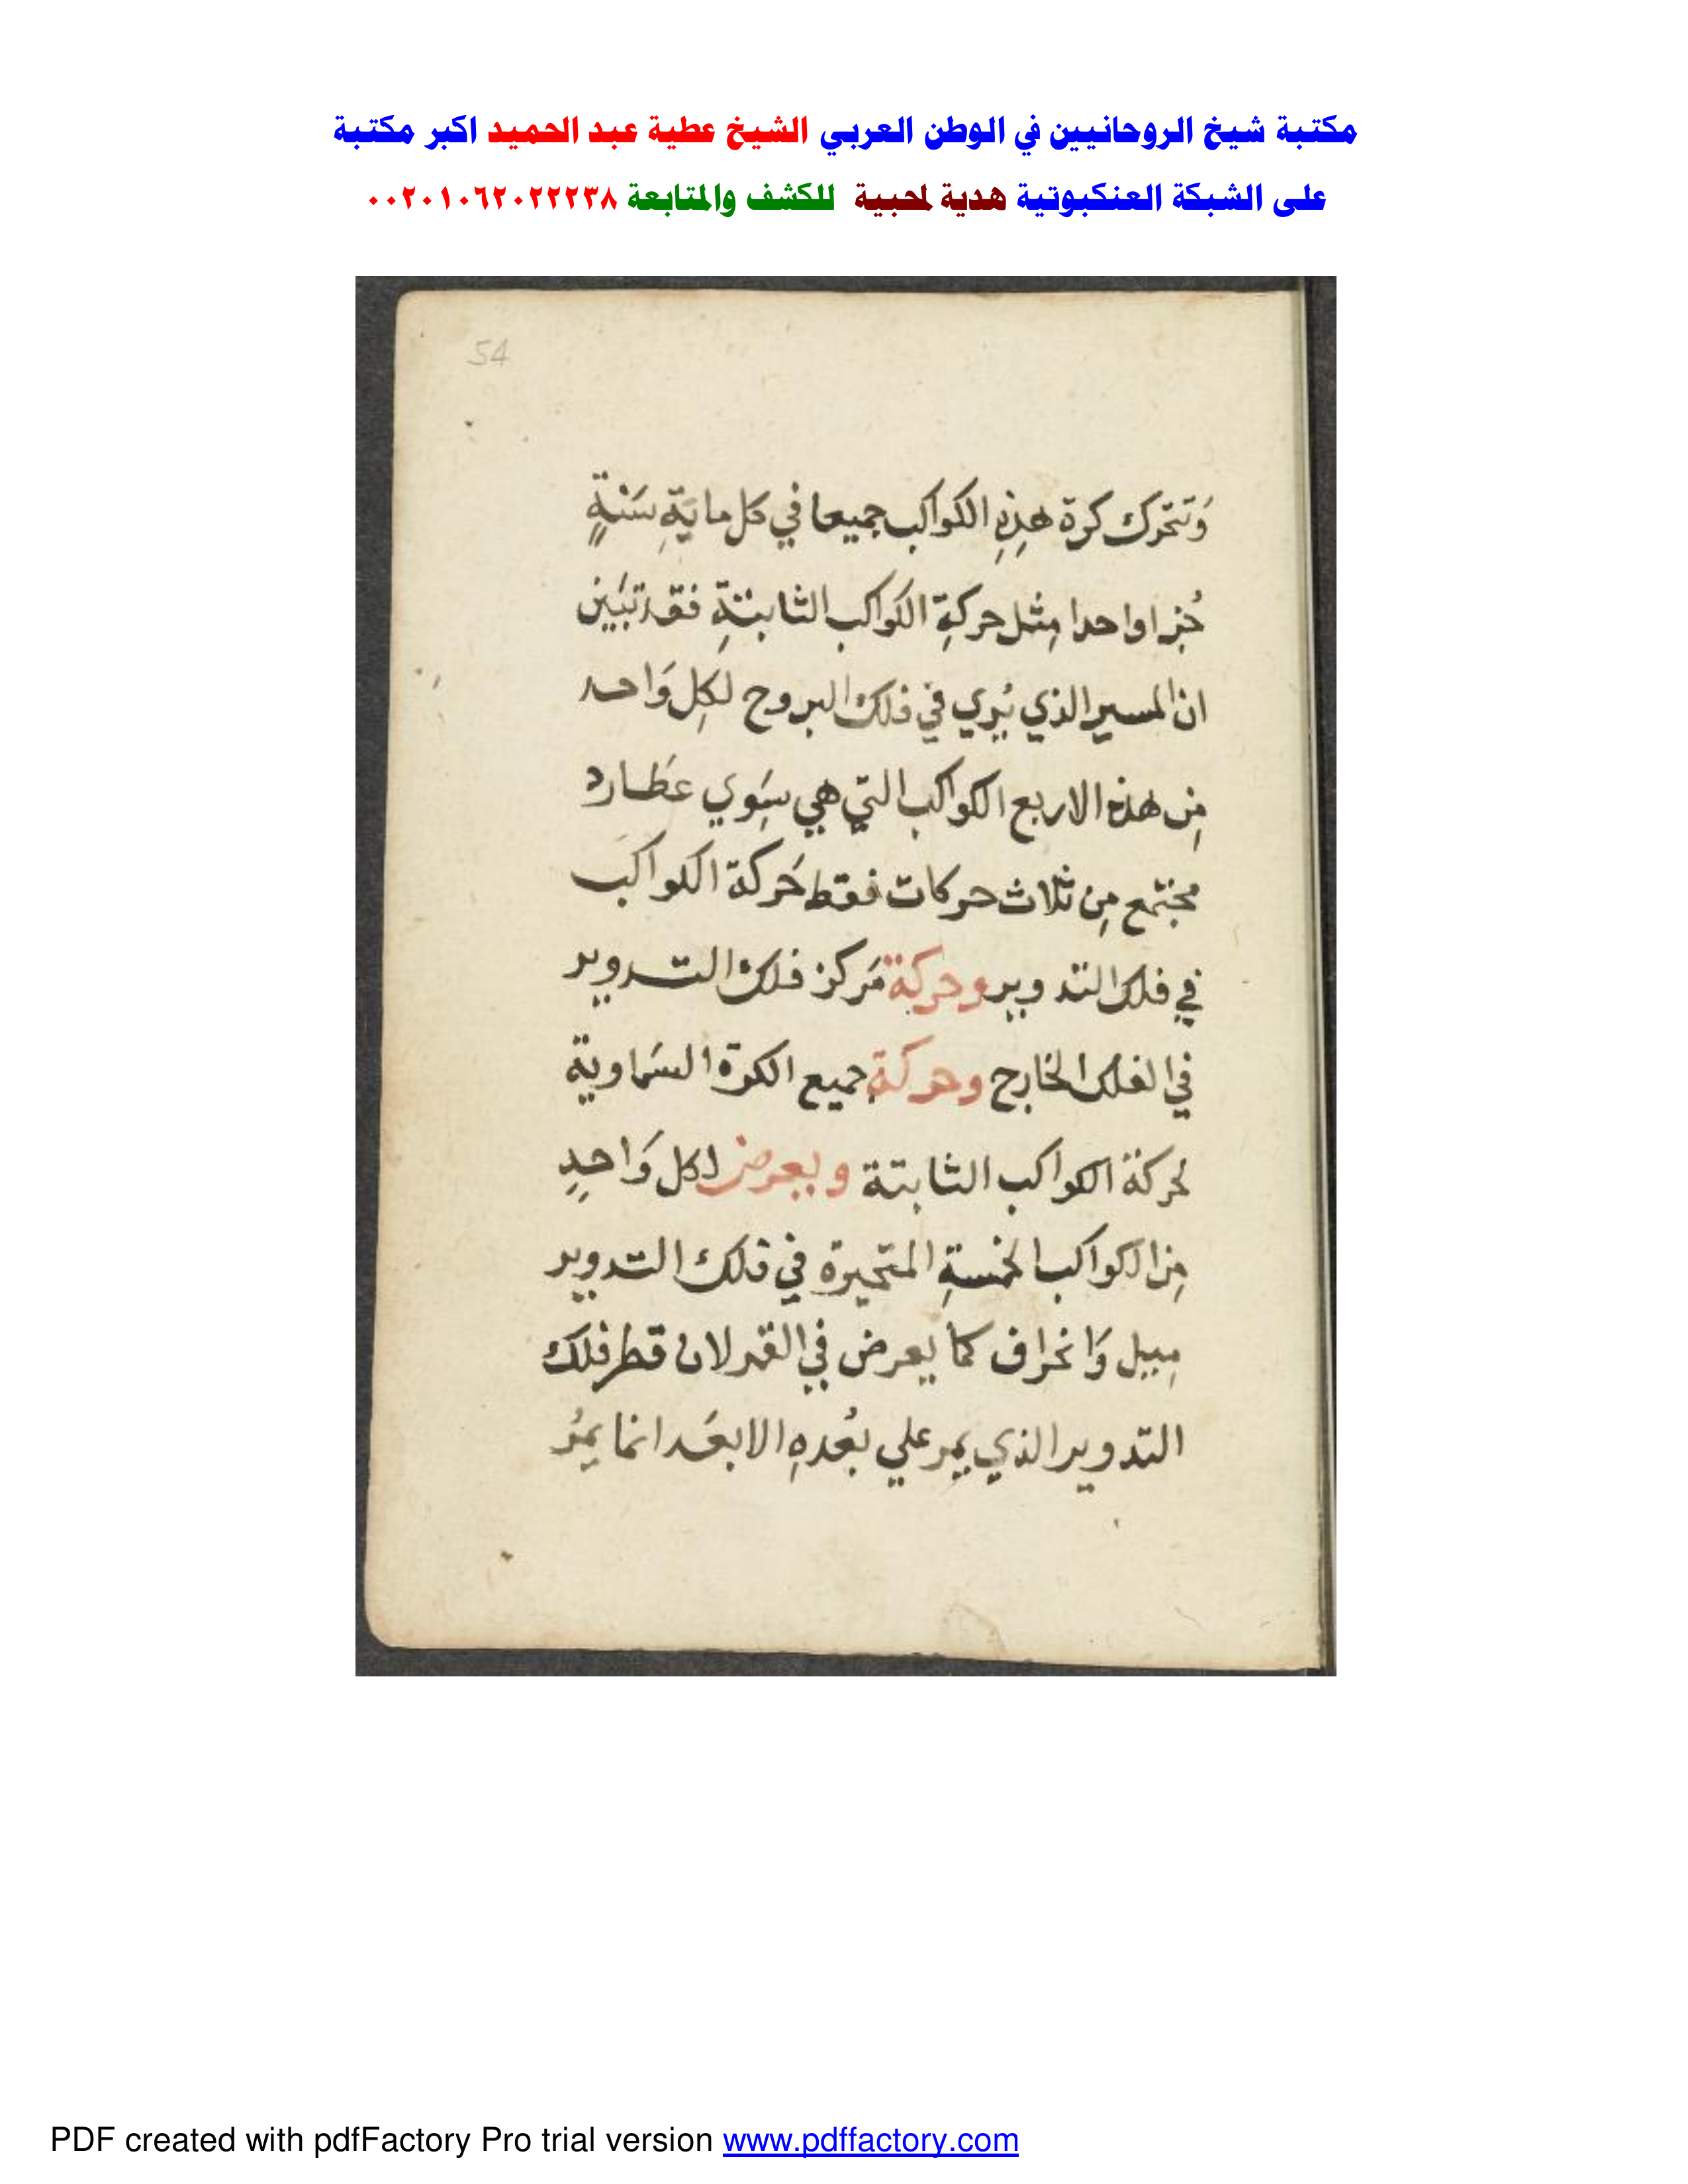 مكتبة شيخ الروحانيين في الوطن العربي الشيخ عطية عبد الحميد اكبر مكتبة
على الشبكة العنكبوتية هدية لمحبية للكشف والمتابعة ٠٠٢٠١٠٦٢٠٢٢٢٣٨
54
وَتتحَرك كرة هذِهِ الكواكب جميعا في كل مايَةِ سَنةٍ
جُزا واحدا مِثل حركةِ الكواكب الثابتةِ فقد تبَين
ان المسير الذي يُري في فلك البروج لكِل وَاحد
مِن هذه الاربع الكواكب التي هي سِوي عطارد
مجتمع مِن ثلاث حركات فقط حَركة الكواكب
في فلك التدوير وحركة مَركز فلك التدوير
في الفلك الخارج وحركة جميع الكرة السَماوية
لحركة الكواكب الثابتة ويعرض لكل وَاحدِ
مِن الكواكب الخمسةِ المتحيرة في فلك التدوير
مِيل وَانحراف كما يعرض في القمر لان قطر فلك
التدوير الذي يمر علي بُعدهِ الابعَد انما يمُر
PDF created with pdfFactory Pro trial version www.pdffactory.com